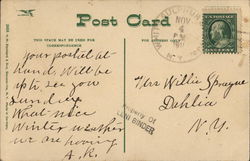 Post Card
THIS SPACE MAY BE USED FOR
CORRESPONDENCE
WHITE SULPHUR
NOV
PM
N.Y.
your postal at
hand. Will be
up to see you
Sunday
What nice
Winter weather
we are having
A.R.
Mrs Willie Sprague
Dehlia
N.Y.
Property of
LENI BINDER